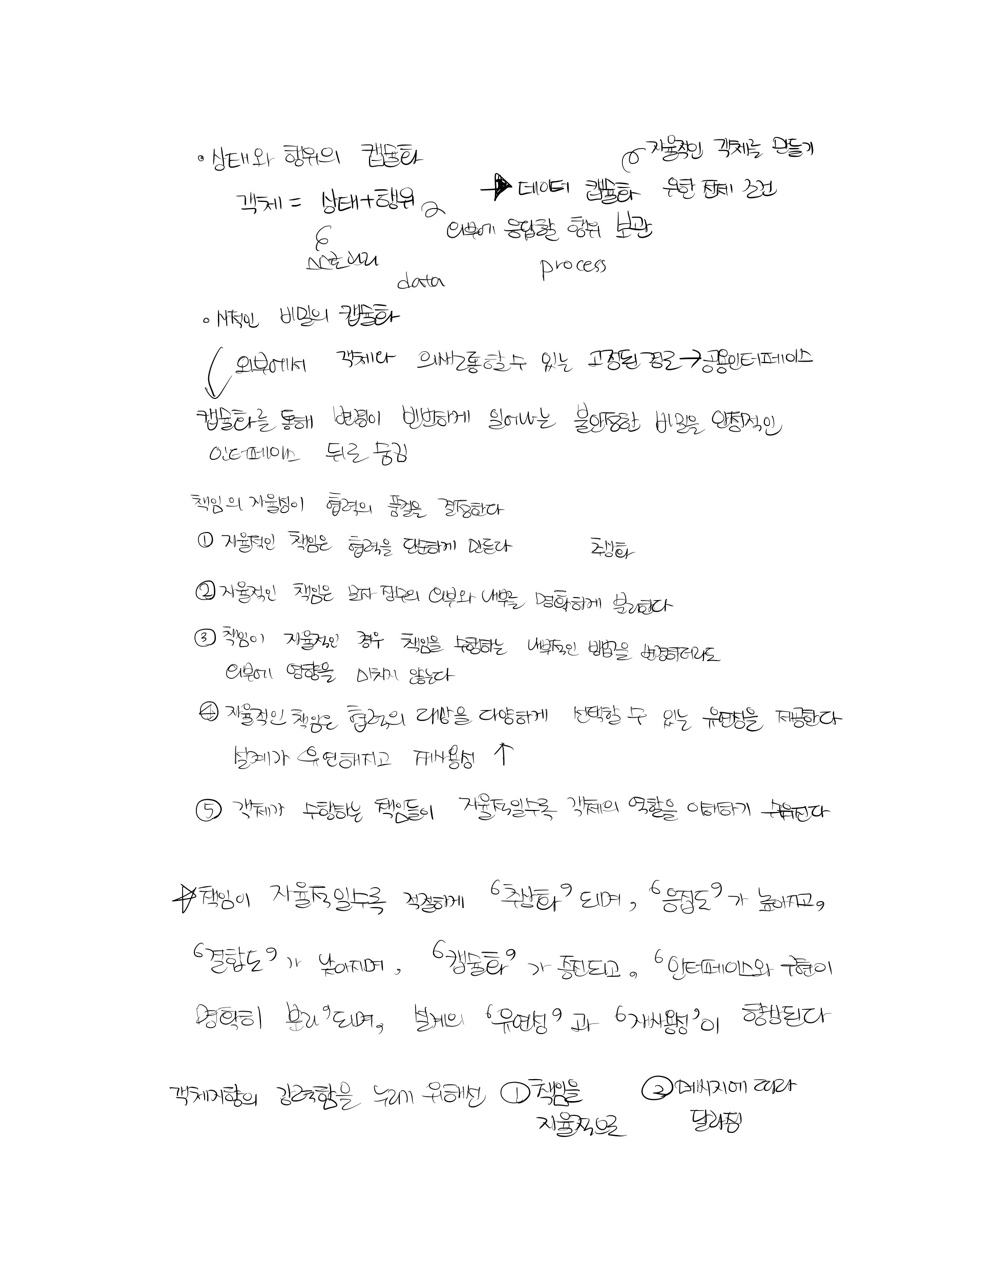 • 상태와 행위의 캡슐화
자율적인 객체를 만들기
객체 = 상태+행위 → 데이터 캡슐화 위한 전제 조건
외부에 응답할 행위 보관
스스로 관리
data process
• 사적인 비밀의 캡슐화
외부에서 객체와 의사소통할 수 있는 고정된 경로 → 공용인터페이스
캡슐화를 통해 변경이 빈번하게 일어나는 불안정한 비밀을 안정적인
인터페이스 뒤로 숨김
책임의 자율성이 협력의 품질을 결정한다
① 자율적인 책임은 협력을 단순하게 만든다 추상화
② 자율적인 책임은 모자 장수의 외부와 내부를 명확하게 분리한다
③ 책임이 자율적인 경우 책임을 수행하는 내부적인 방법을 변경하더라도
외부에 영향을 미치지 않는다
④ 자율적인 책임은 협력의 대상을 다양하게 선택할 수 있는 유연성을 제공한다
설계가 유연해지고 재사용성 ↑
⑤ 객체가 수행하는 책임들이 자율적일수록 객체의 역할을 이해하기 쉬워진다
☆ 책임이 자율적일수록 적절하게 '추상화'되며, '응집도'가 높아지고,
'결합도'가 낮아지며, '캡슐화'가 증진되고, '인터페이스와 구현이
명확히 분리'되며, 설계의 '유연성'과 '재사용성'이 향상된다
객체지향의 강력함을 누리기 위해선 ① 책임을 ② 메시지에 따라
자율적으로 달라짐